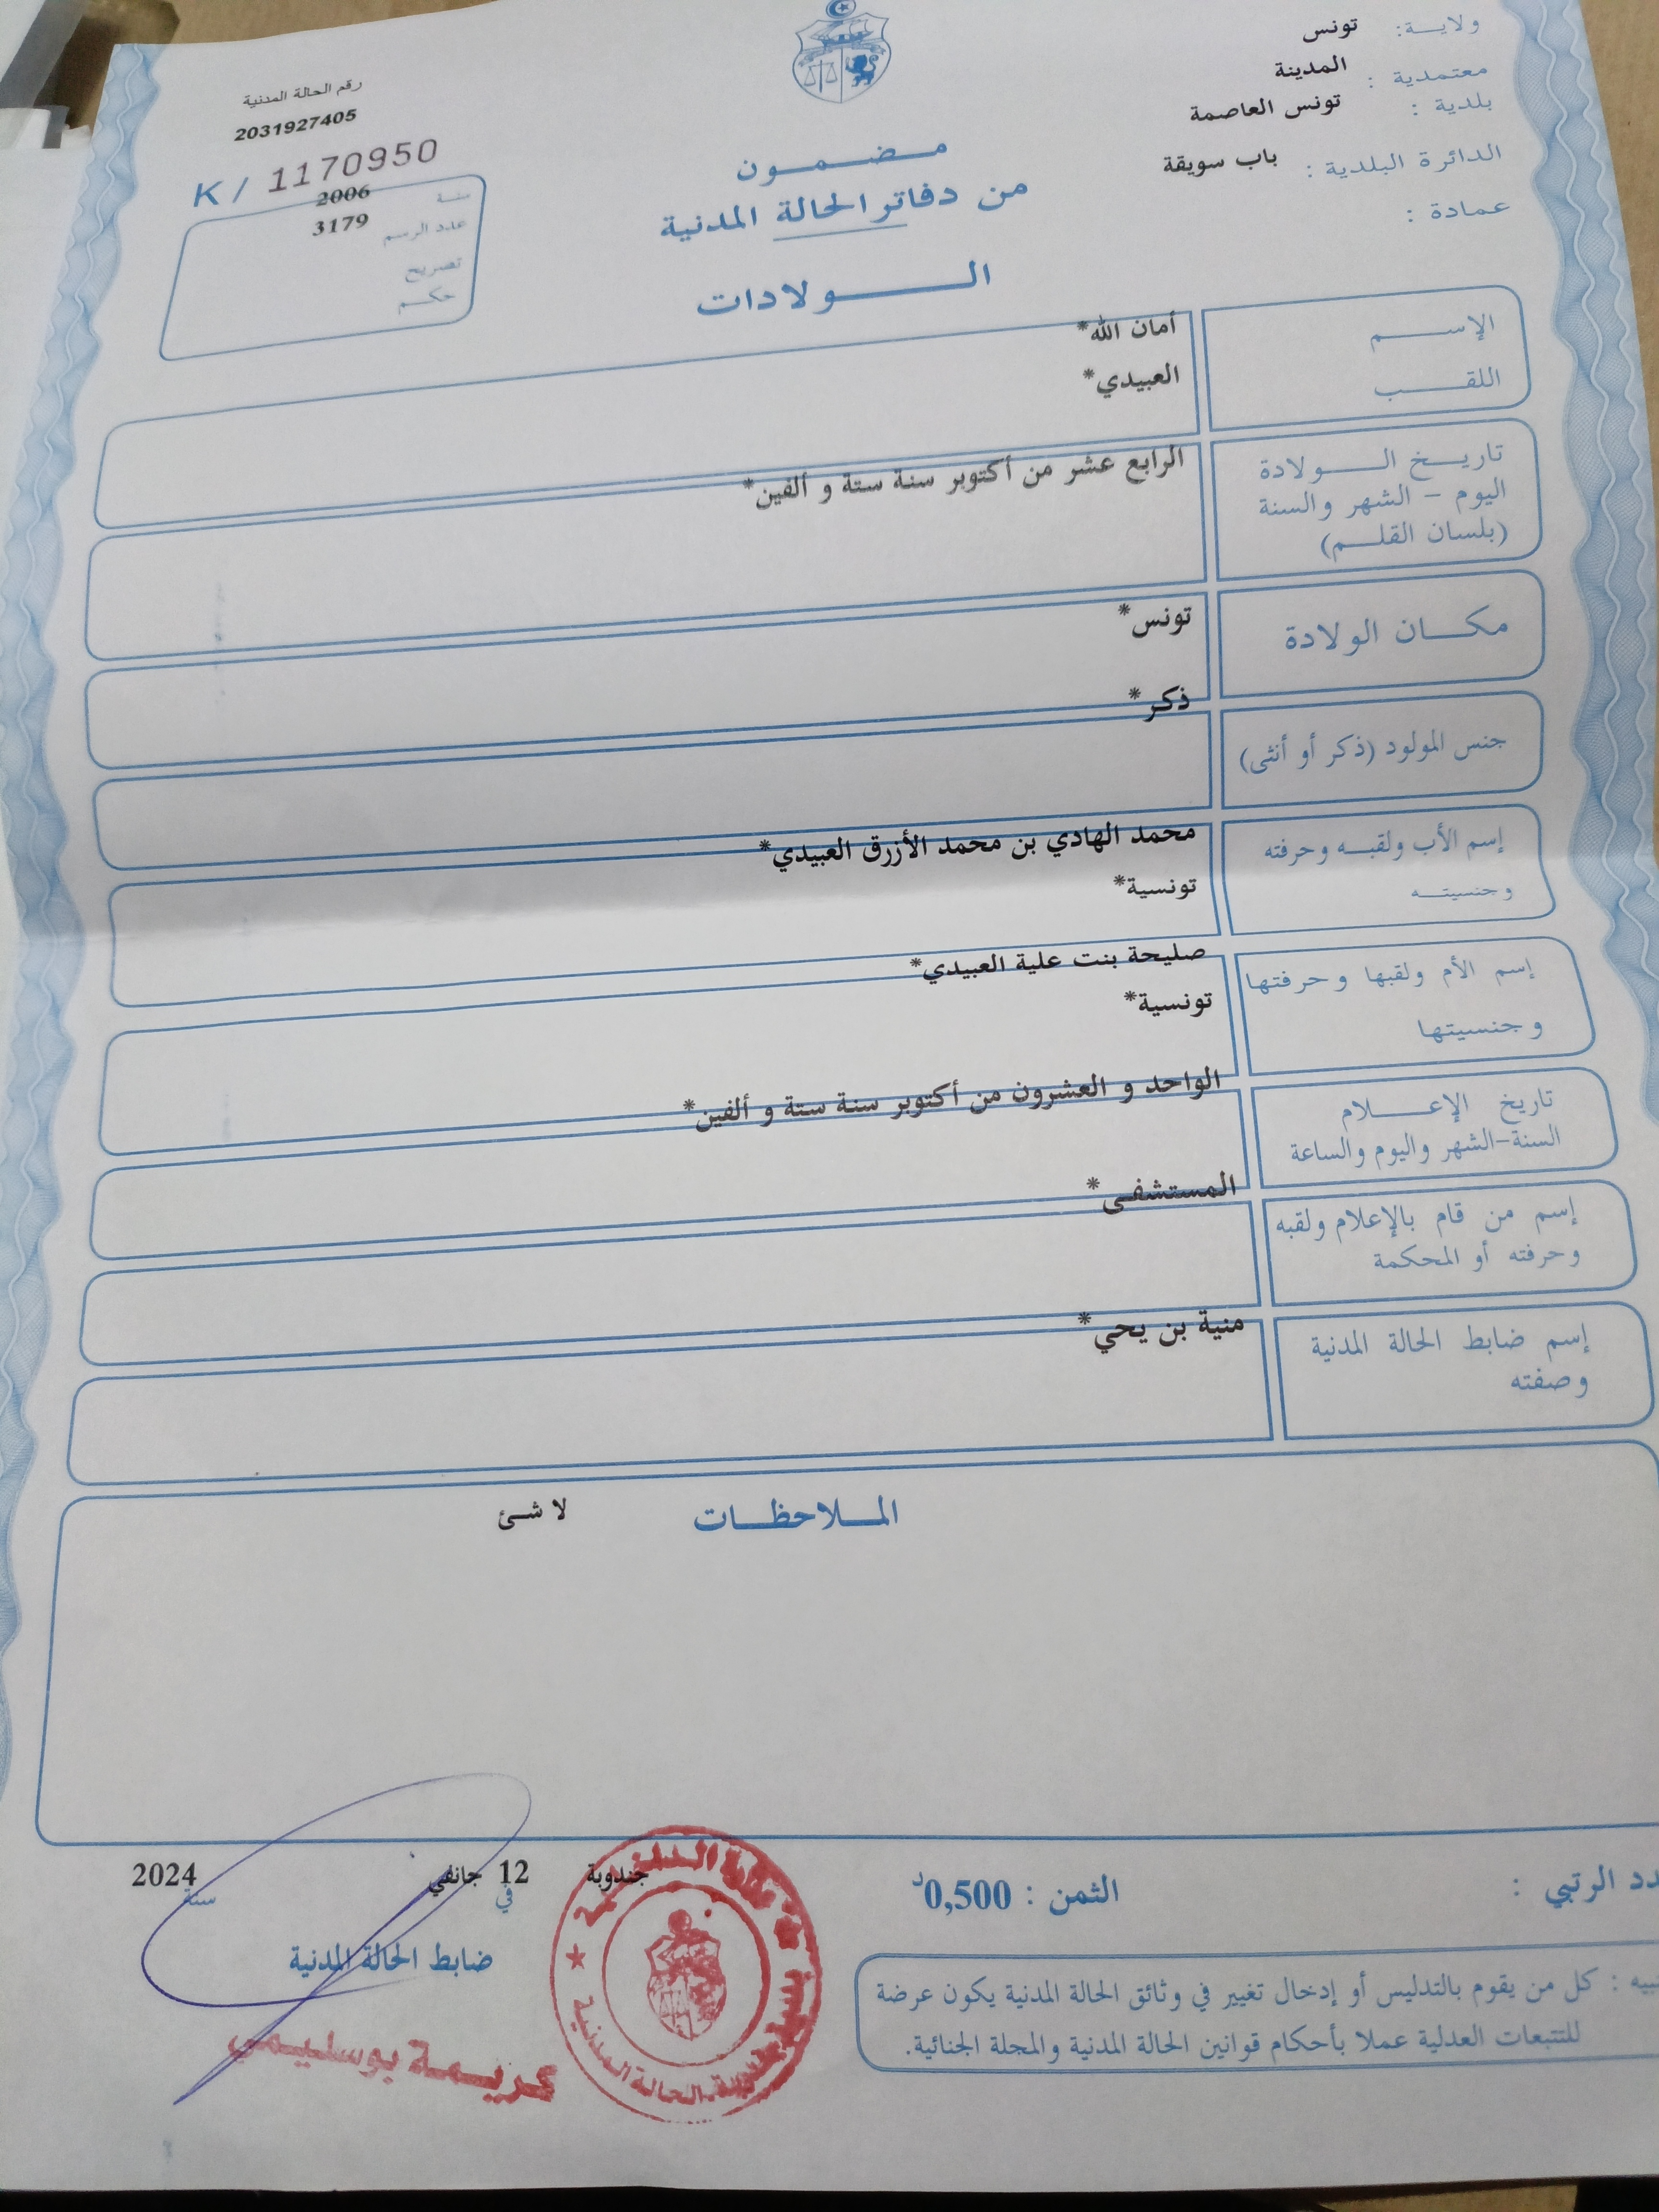 ولاية: تونس
معتمدية : المدينة
بلدية : تونس العاصمة
الدائرة البلدية : باب سويقة
عمادة :
مضمون
من دفاتر الحالة المدنية
الولادات
رقم الحالة المدنية
2031927405
K / 1170950
سنة 2006
عدد الرسم 3179
تصريح
حكم
الإسم أمان الله*
اللقب العبيدي*
تاريخ الولادة الرابع عشر من أكتوبر سنة ستة و ألفين*
اليوم - الشهر والسنة
(بلسان القلم)
مكان الولادة تونس*
جنس المولود (ذكر أو أنثى) ذكر*
إسم الأب ولقبه وحرفته محمد الهادي بن محمد الأزرق العبيدي*
وجنسيته تونسية*
إسم الأم ولقبها وحرفتها صليحة بنت علية العبيدي*
وجنسيتها تونسية*
تاريخ الإعلام الواحد و العشرون من أكتوبر سنة ستة و ألفين*
السنة-الشهر واليوم والساعة
إسم من قام بالإعلام ولقبه المستشفى*
وحرفته أو المحكمة
إسم ضابط الحالة المدنية منية بن يحي*
وصفته
الملاحظات لا شئ
الرتبي :
الثمن : 0,500د
جندوبة في 12 جانفي سنة 2024
ضابط الحالة المدنية
كريمة بوسليمي
الحالة المدنية
: كل من يقوم بالتدليس أو إدخال تغيير في وثائق الحالة المدنية يكون عرضة
للتتبعات العدلية عملا بأحكام قوانين الحالة المدنية والمجلة الجنائية.